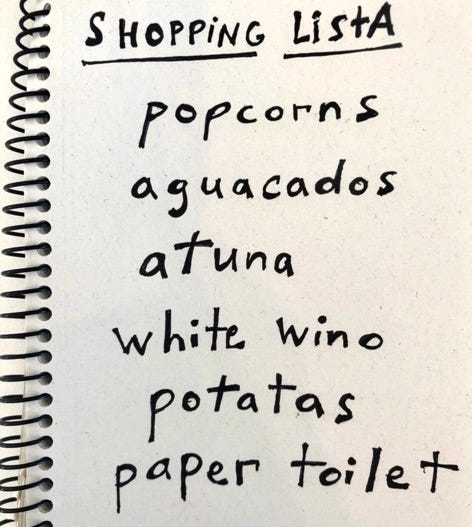 SHOPPING LiStA
popcorns
aguacados
atuna
white wino
potatas
paper toilet